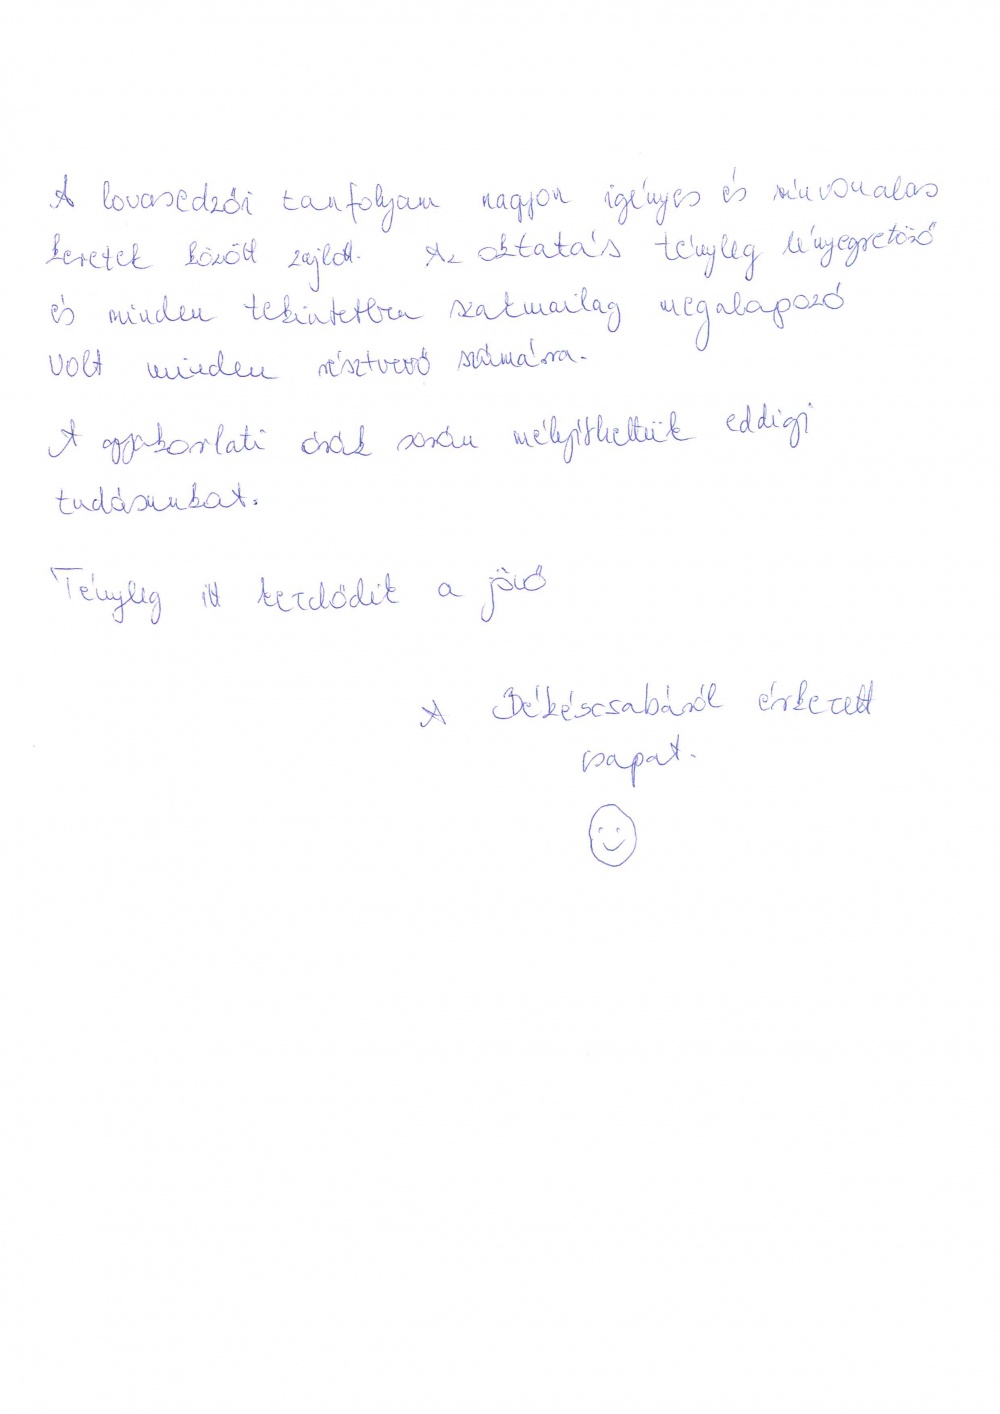 A lovasedzői tanfolyam nagyon igényes és színvonalas
keretek között zajlott. Az oktatás tényleg lényegretörő
és minden tekintetben szakmailag megalapozó
volt minden résztvevő számára.
A gyakorlati órák során mélyíthettük eddigi
tudásunkat.
Tényleg itt kezdődik a jövő
A Békéscsabáról érkezett
csapat.